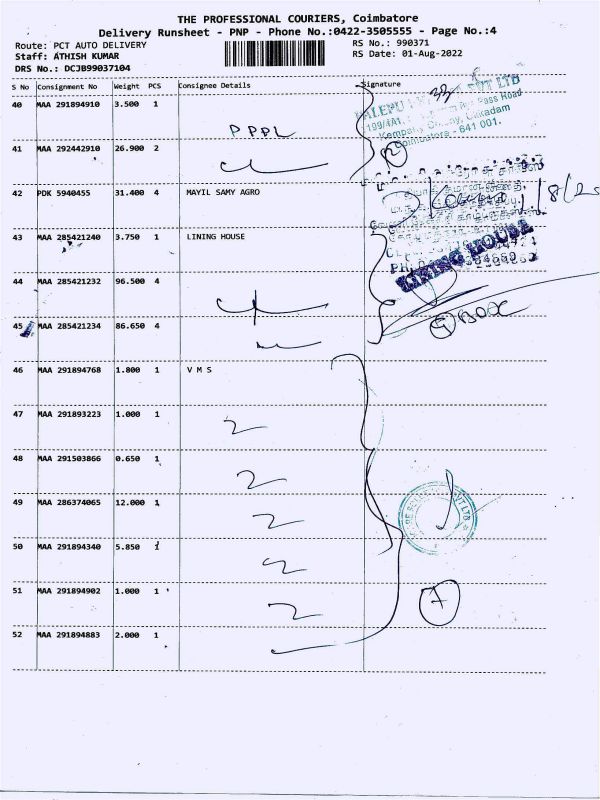 THE PROFESSIONAL COURIERS, Coimbatore
Delivery Runsheet - PNP - Phone No.:0422-3505555 - Page No.:4
Route: PCT AUTO DELIVERY RS No.: 990371
Staff: ATHISH KUMAR RS Date: 01-Aug-2022
DRS No.: DCJB99037104
S No Consignment No Weight PCS Consignee Details Signature
40 MAA 291894910 3.500 1
PPPL
41 MAA 292442910 26.900 2
2
42 PDK 5940455 31.400 4 MAYIL SAMY AGRO
43 MAA 285421240 3.750 1 LINING HOUSE
LINING HOUSE
44 MAA 285421232 96.500 4
45 MAA 285421234 86.650 4
BOX
46 MAA 291894768 1.800 1 V M S
47 MAA 291893223 1.000 1
48 MAA 291503866 0.650 1
49 MAA 286374065 12.000 1
50 MAA 291894340 5.850 1
51 MAA 291894902 1.000 1
7
52 MAA 291894883 2.000 1